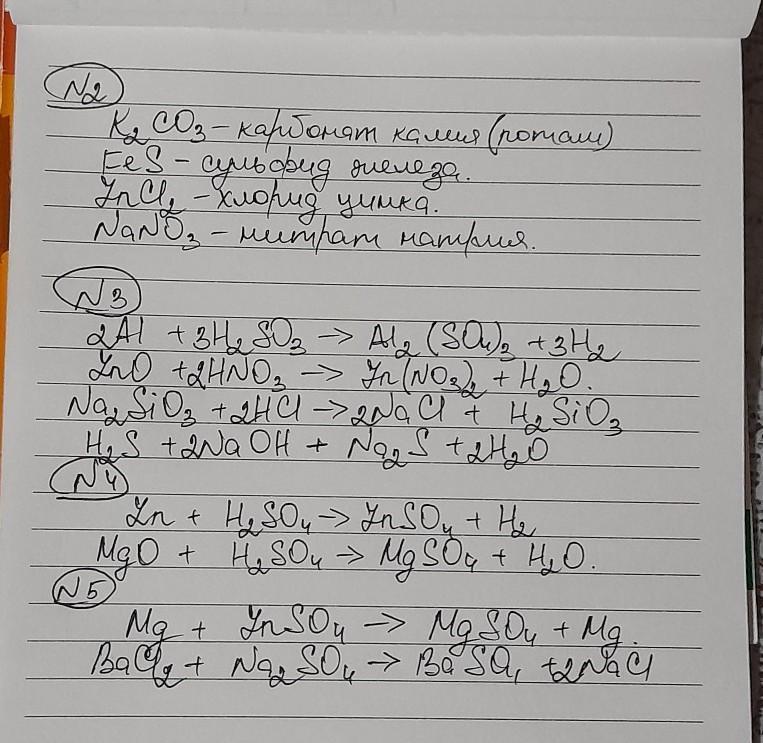 N2
K₂CO₃ – карбонат калия (поташ)
FeS – сульфид железа.
ZnCl₂ – хлорид цинка.
NaNO₃ – нитрат натрия.
N3
2Al + 3H₂SO₃ → Al₂(SO₄)₃ + 3H₂
ZnO + 2HNO₃ → Zn(NO₃)₂ + H₂O.
Na₂SiO₃ + 2HCl → 2NaCl + H₂SiO₃
H₂S + 2NaOH + Na₂S + 2H₂O
N4
Zn + H₂SO₄ → ZnSO₄ + H₂
MgO + H₂SO₄ → MgSO₄ + H₂O.
N5
Mg + ZnSO₄ → MgSO₄ + Mg.
BaCl₂ + Na₂SO₄ → BaSO₄ + 2NaCl